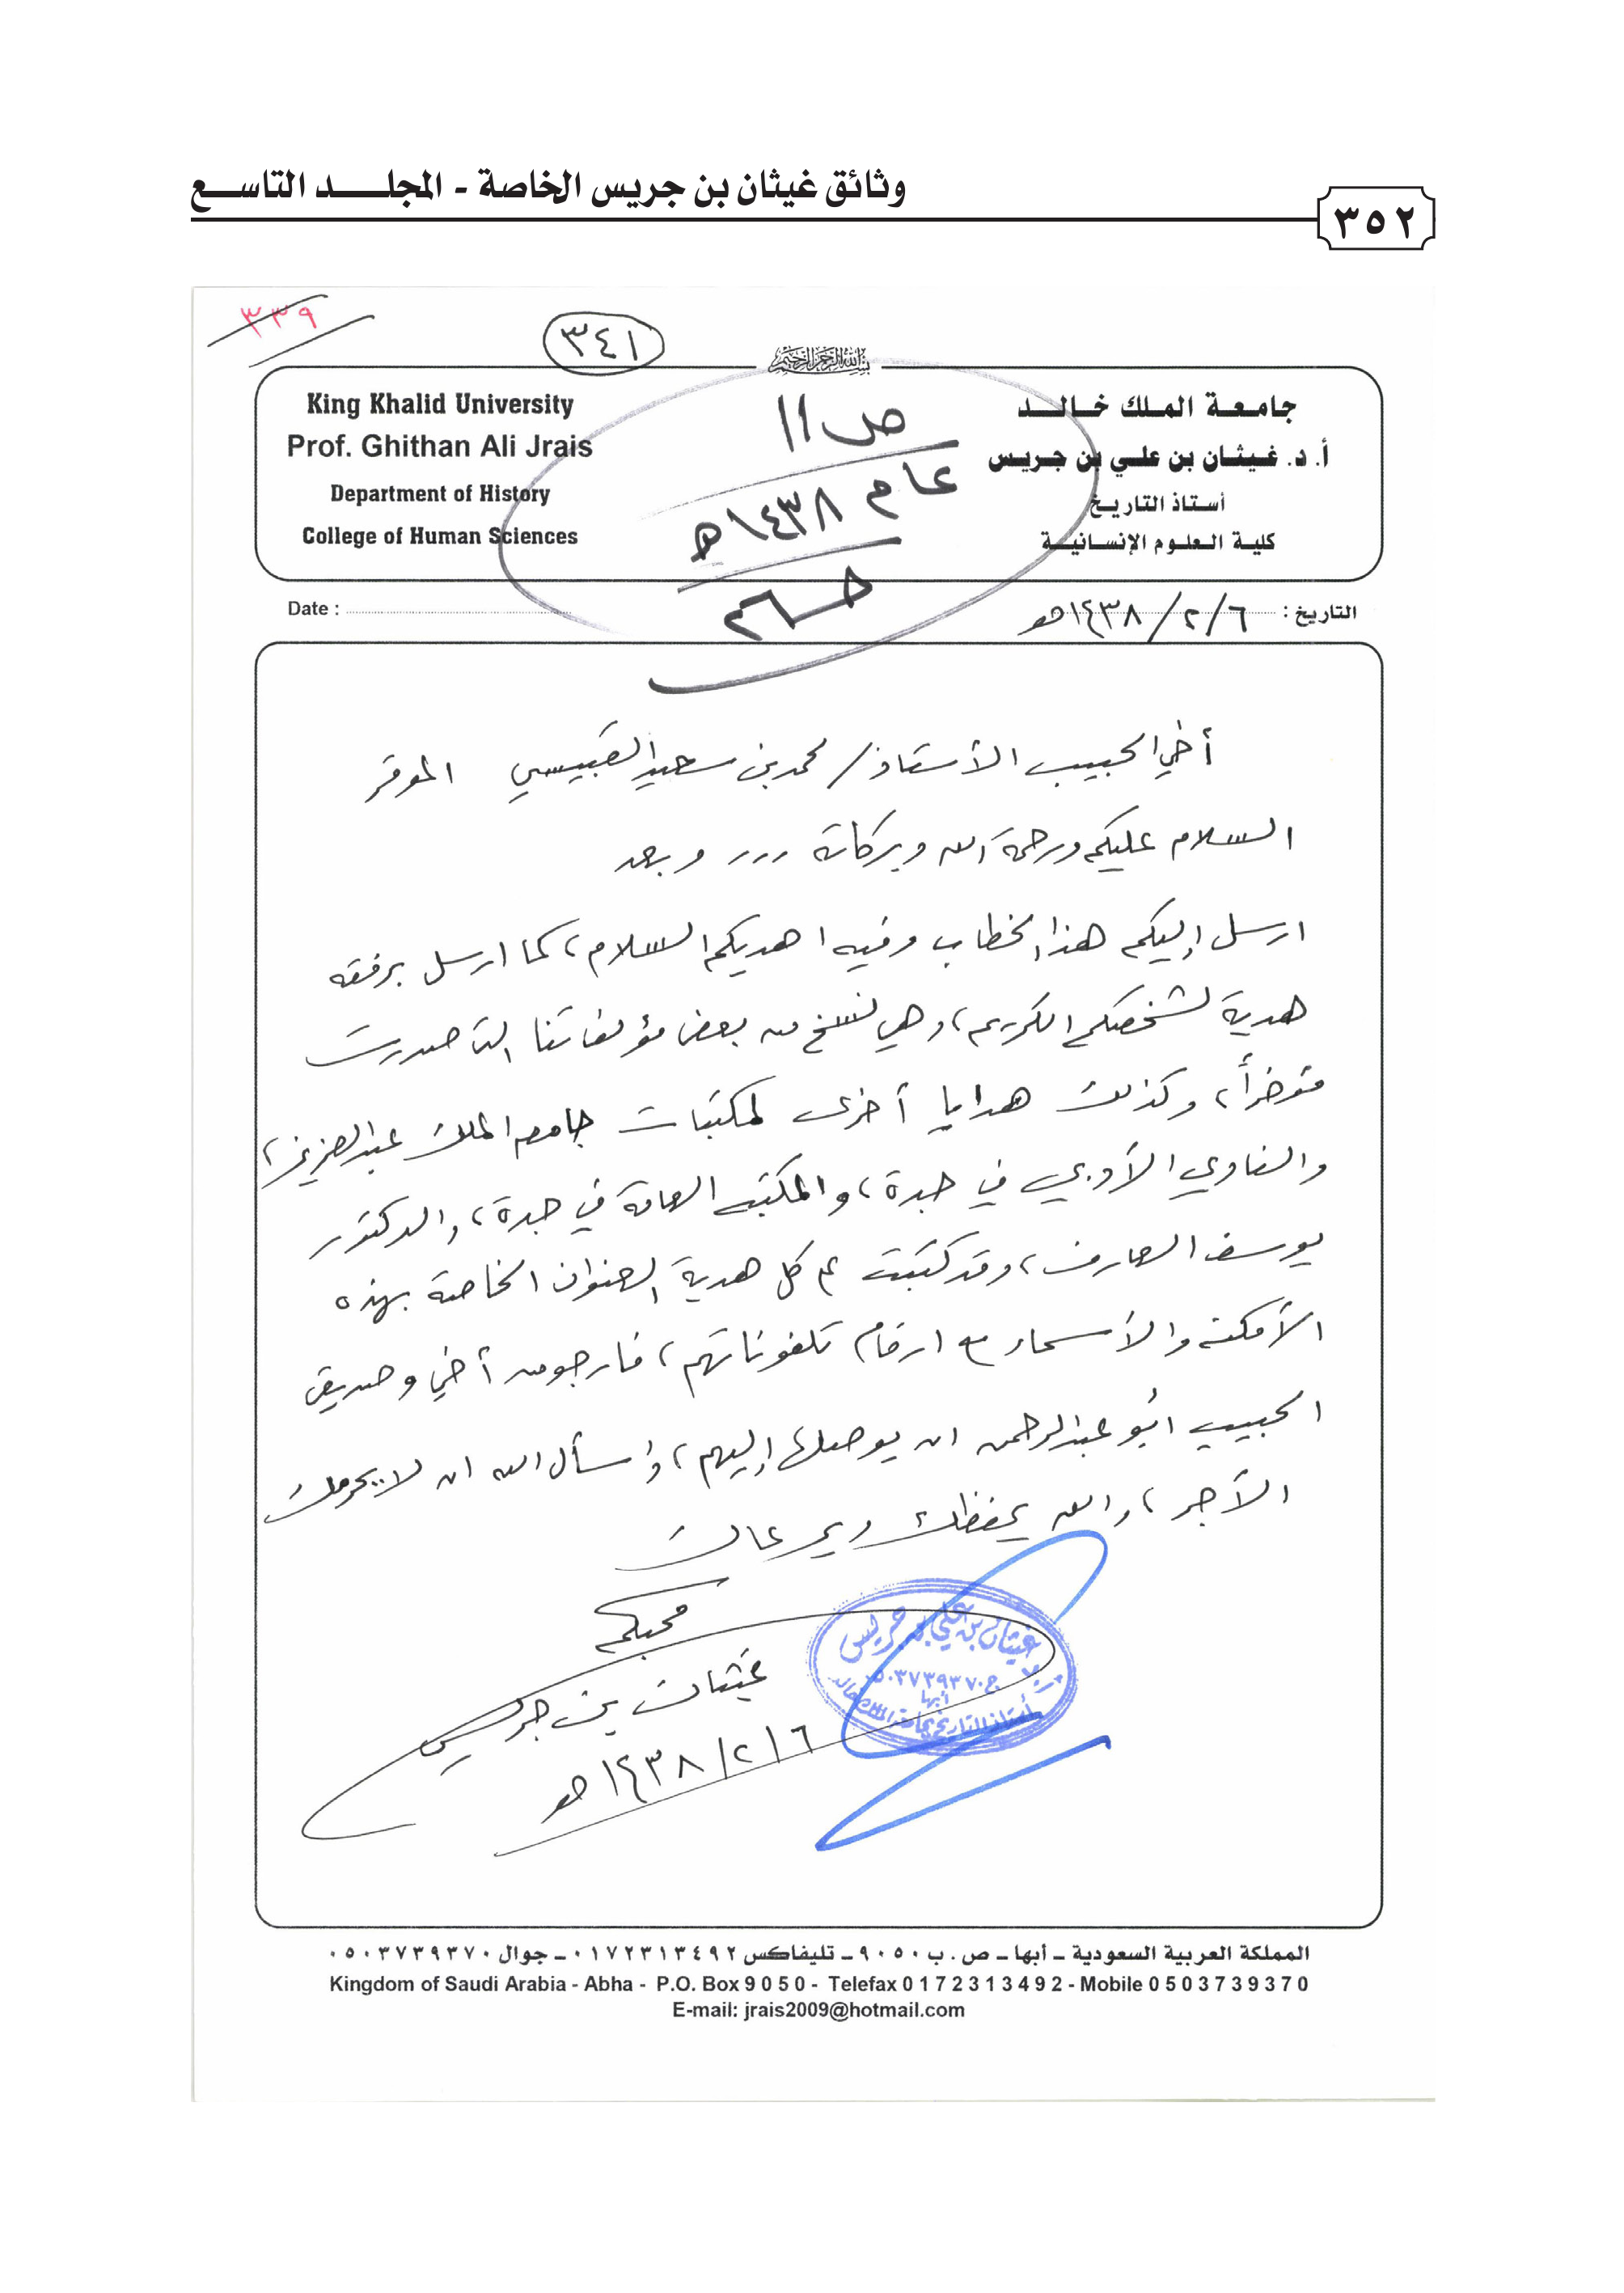 وثائق غيثان بن جريس الخاصة - المجلد التاسع
٣٥٢
٣٣٩
٣٤١
بسم الله الرحمن الرحيم
جامعة الملك خالد
أ. د. غيثان بن علي بن جريس
أستاذ التاريخ
كلية العلوم الإنسانية
King Khalid University
Prof. Ghithan Ali Jrais
Department of History
College of Human Sciences
ص ١١
عام ١٤٣٨هـ
التاريخ : ٦/ ٢/ ١٤٣٨هـ
Date :
أخي الحبيب الأستاذ/ محمد بن سعيد القبيسي الموقر
السلام عليكم ورحمة الله وبركاته ... وبعد
ارسل إليكم هذا الخطاب وفيه اهديكم السلام، كما ارسل برفقه
هدية لشخصكم الكريم، وهي نسخ من بعض مؤلفاتنا التي صدرت
مؤخراً، وكذلك هدايا أخرى لمكتبات جامعة الملك عبدالعزيز،
والنادي الأدبي في جدة، والمكتبة العامة في جدة، والدكتور
يوسف العارف، وقد كتبت على كل هدية العنوان الخاصة بهذه
الأمكنة والأسماء مع ارقام تلفوناتهم، فارجو من أخي وصديقي
الحبيب أبو عبدالرحمن ان يوصلها إليهم، وأسأل الله ان لا يحرمك
الأجر، والله يحفظك ويرعاك
محبكم
غيثان بن جريس
٦/ ٢/ ١٤٣٨هـ
غيثان بن علي بن جريس
ج ٠٥٠٣٧٣٩٣٧٠
أبها
أستاذ التاريخ بجامعة الملك خالد
المملكة العربية السعودية – أبها – ص . ب ٩٠٥٠ – تليفاكس ٠١٧٢٣١٣٤٩٢ – جوال ٠٥٠٣٧٣٩٣٧٠
Kingdom of Saudi Arabia - Abha - P.O. Box 9 0 5 0 - Telefax 0 1 7 2 3 1 3 4 9 2 - Mobile 0 5 0 3 7 3 9 3 7 0
E-mail: jrais2009@hotmail.com